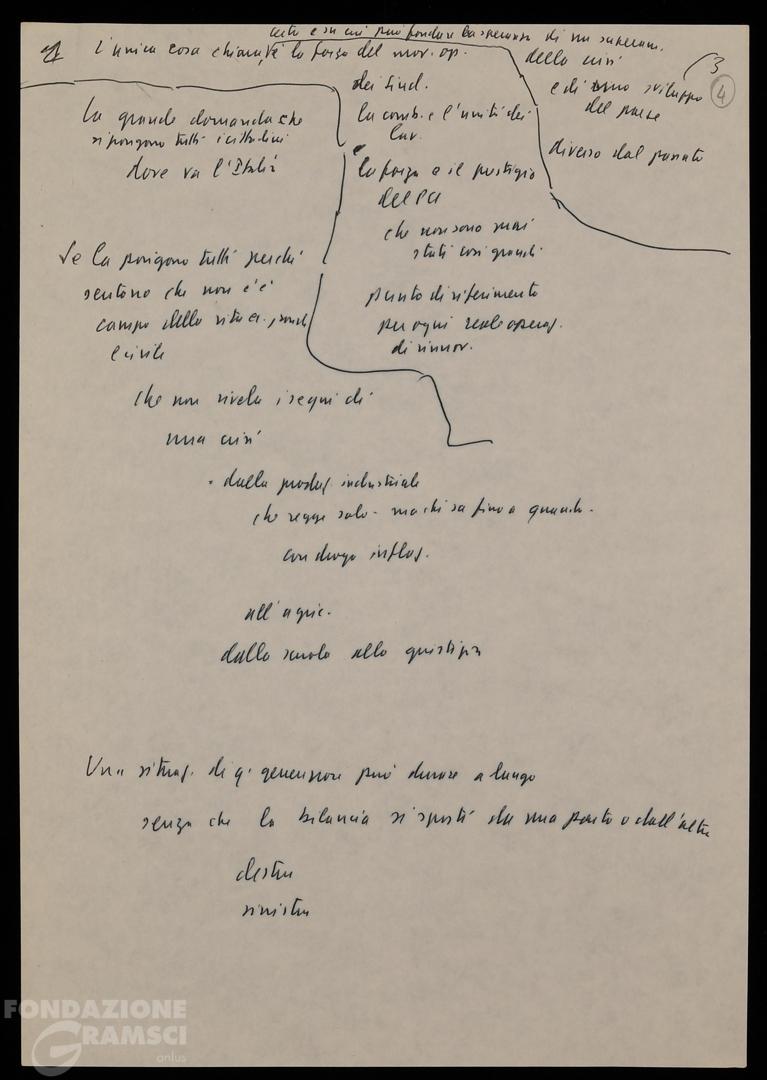 certa e su cui può fondare la speranza di un superam.
L'unica cosa chiara, è la forza del mov. op.
della crisi
3
4
e di uno sviluppo
del paese
diverso dal passato
dei sind.
la comb. e l'unità dei
lav.
e la forza e il prestigio
del PCI
che non sono mai
stati così grandi
punto di riferimento
per ogni reale operaz.
di rinnov.
La grande domanda che
si pongono tutti i cittadini
dove va l'Italia
Se la pongono tutti perché
sentono che non c'è
campo della vita ec.
e civile
che non rivela i segni di
una crisi
dalla produz. industriale
che regge solo - ma chi sa fino a quando -
con droga inflaz.
all'agric.
dalla scuola alla giustizia
Una situaz. di q. genere non può durare a lungo
senza che la bilancia si sposti da una parte o dall'altra
destra
sinistra
FONDAZIONE
GRAMSCI
onlus